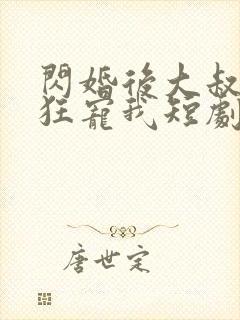 閃婚後大叔
狂寵我短劇
唐世定